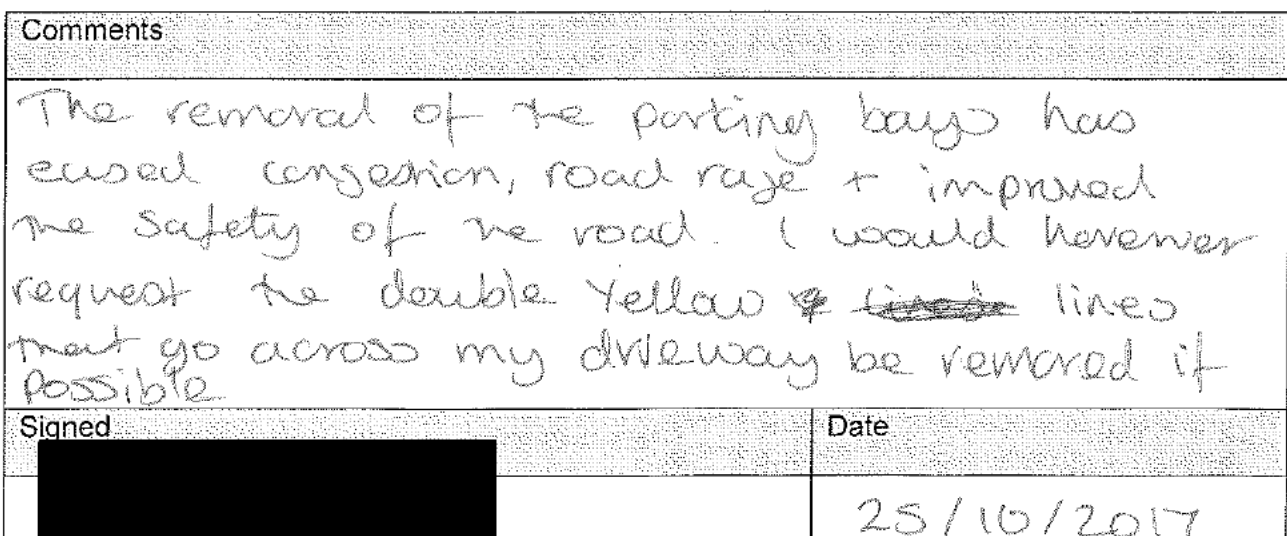 Comments
The removal of the parking bays has
eased congestion, road rage + improved
the safety of the road. I would however
request the double Yellow lines
that go across my driveway be removed if
possible
Signed
Date
25/10/2017